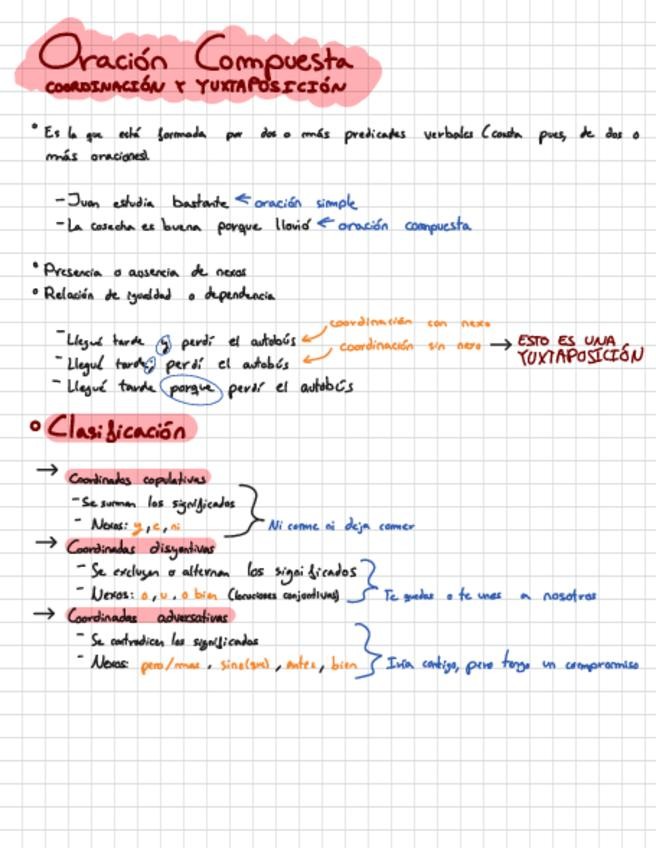 Oración Compuesta
COORDINACIÓN Y YUXTAPOSICIÓN
• Es la que está formada por dos o más predicados verbales (consta pues, de dos o
más oraciones).
- Juan estudia bastante ← oración simple
- La cosecha es buena porque llovió ← oración compuesta
• Presencia o ausencia de nexos
• Relación de igualdad o dependencia
- Llegué tarde y perdí el autobús ← coordinación con nexo
- Llegué tarde; perdí el autobús ← coordinación sin nexo → ESTO ES UNA YUXTAPOSICIÓN
- Llegué tarde porque perdí el autobús
• Clasificación
→ Coordinadas copulativas
- Se suman los significados
- Nexos: y, e, ni
Ni come ni deja comer
→ Coordinadas disyuntivas
- Se excluyen o alternan los significados
- Nexos: o, u, o bien (locuciones conjuntivas)
Te quedas o te unes a nosotros
→ Coordinadas adversativas
- Se contradicen los significados
- Nexos: pero/mas, sino(que), antes, bien
Iría contigo, pero tengo un compromiso